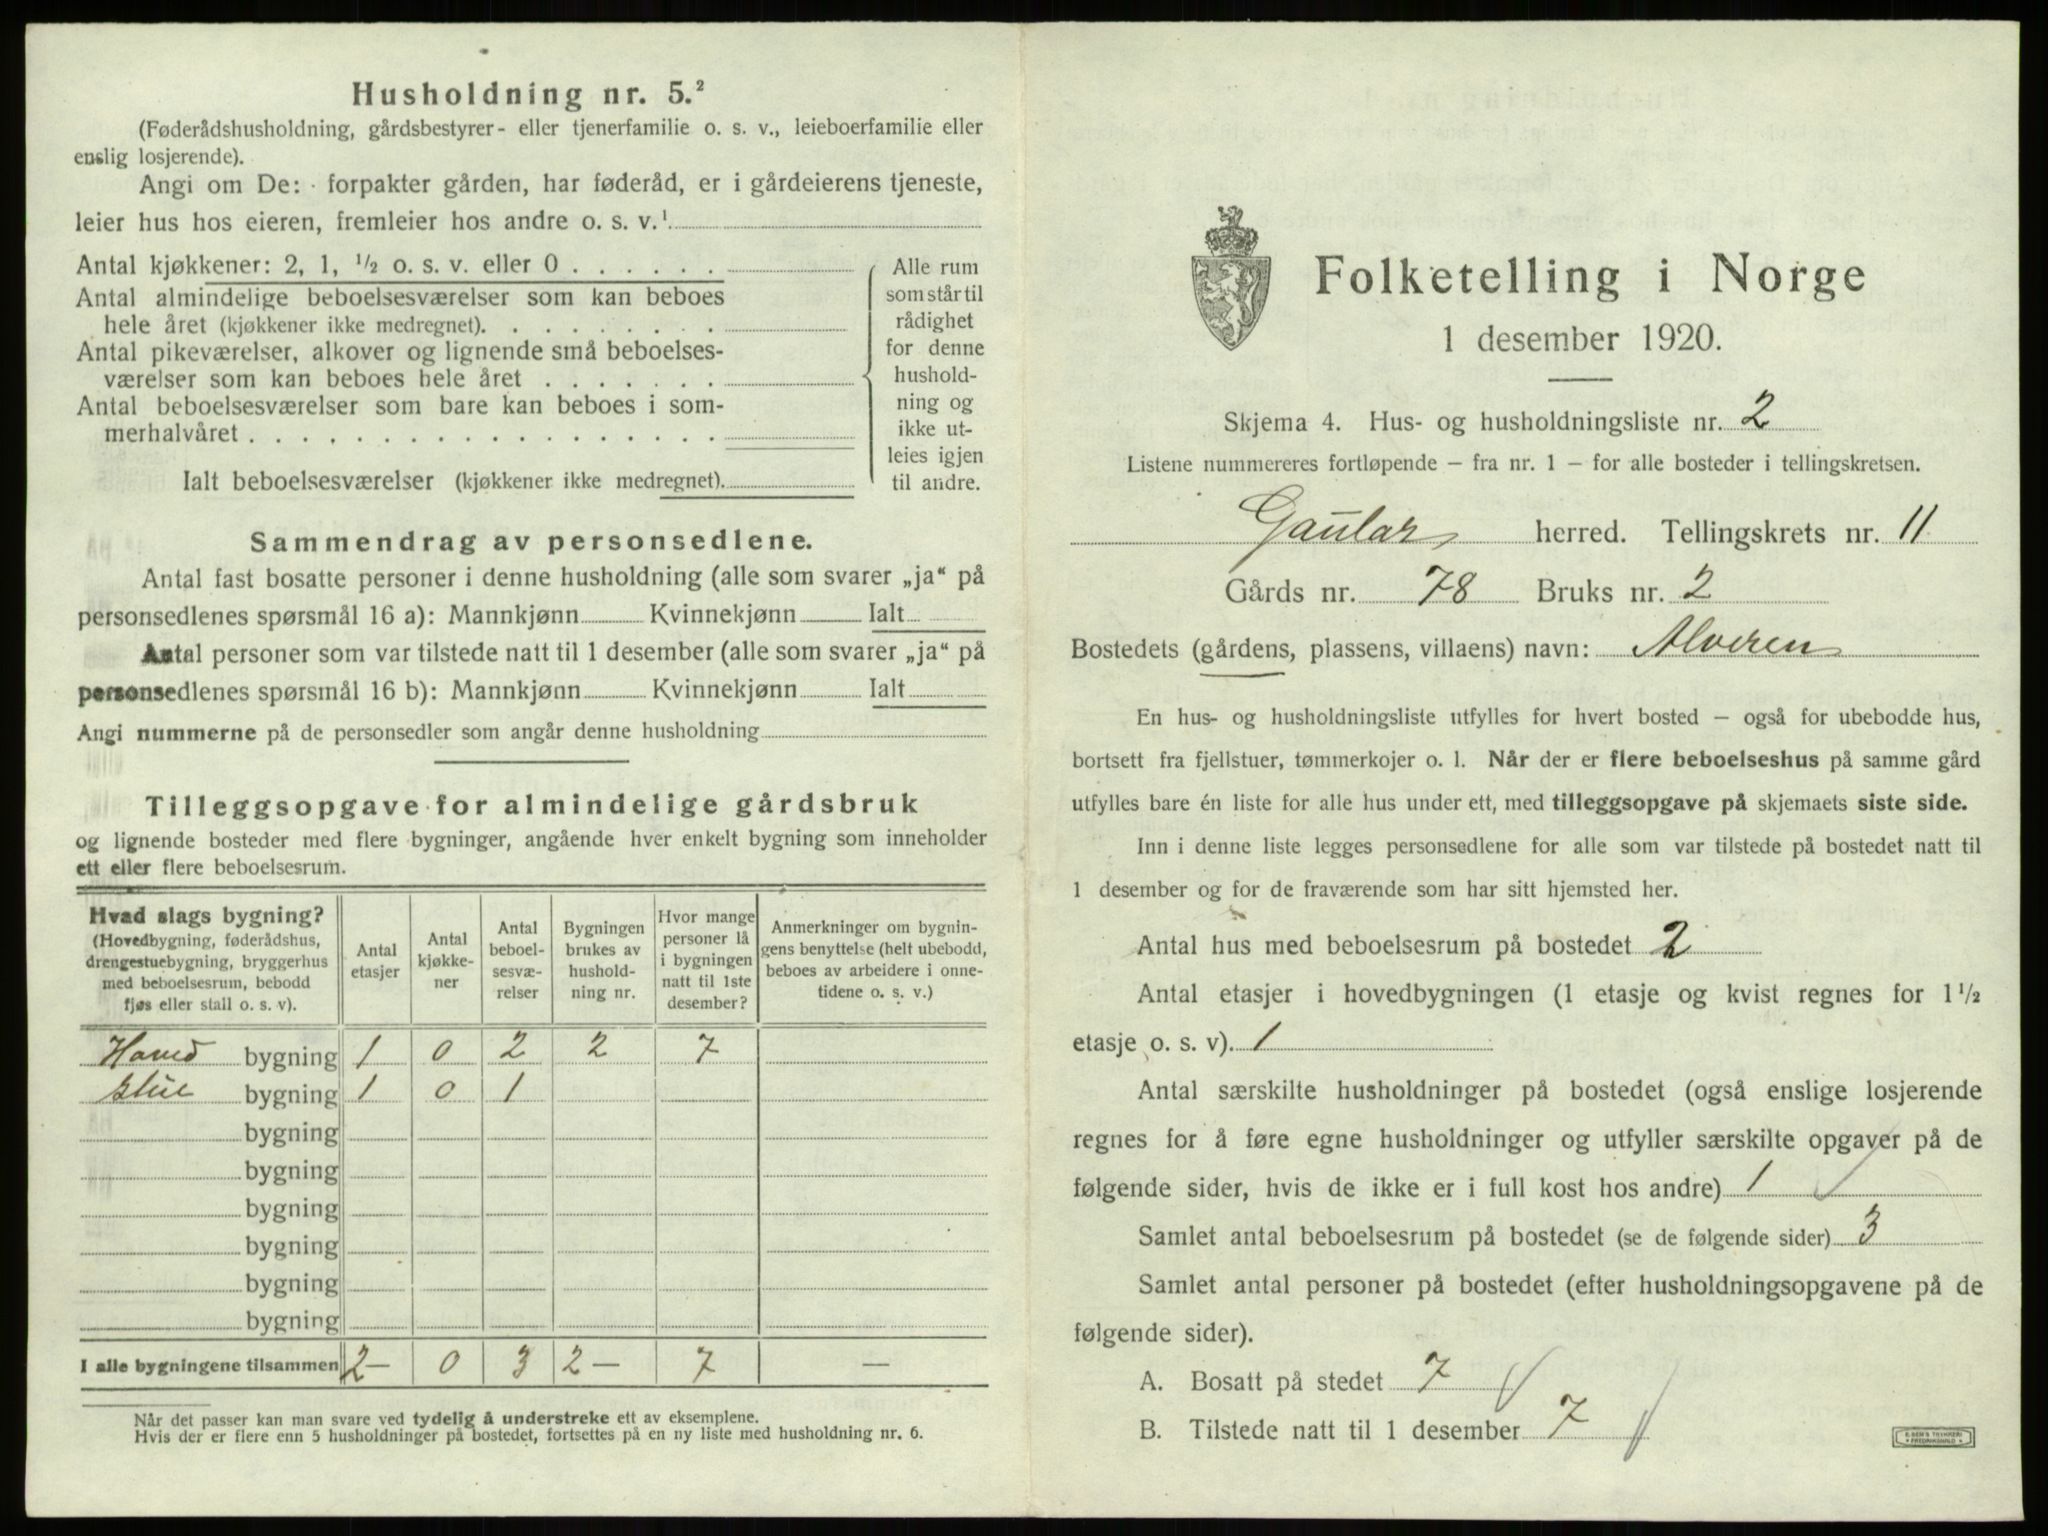 Husholdning nr. 5.²
(Føderådshusholdning, gårdsbestyrer- eller tjenerfamilie o. s. v., leieboerfamilie eller
enslig losjerende).
Angi om De: forpakter gården, har føderåd, er i gårdeierens tjeneste,
leier hus hos eieren, fremleier hos andre o. s. v.¹
Antal kjøkkener: 2, 1, ½ o. s. v. eller 0 . . . . . .
Antal almindelige beboelsesværelser som kan beboes
hele året (kjøkkener ikke medregnet). . . . . . . . .
Antal pikeværelser, alkover og lignende små beboelses-
værelser som kan beboes hele året . . . . . . .
Antal beboelsesværelser som bare kan beboes i som-
merhalvåret . . . . . . . . . . . . . . . . . .
Ialt beboelsesværelser (kjøkkener ikke medregnet).
Alle rum
som står til
rådighet
for denne
hushold-
ning og
ikke ut-
leies igjen
til andre.
Sammendrag av personsedlene.
Antal fast bosatte personer i denne husholdning (alle som svarer „ja“ på
personsedlenes spørsmål 16 a): Mannkjønn Kvinnekjønn Ialt
Antal personer som var tilstede natt til 1 desember (alle som svarer „ja“ på
personsedlenes spørsmål 16 b): Mannkjønn Kvinnekjønn Ialt
Angi nummerne på de personsedler som angår denne husholdning
Tilleggsopgave for almindelige gårdsbruk
og lignende bosteder med flere bygninger, angående hver enkelt bygning som inneholder
ett eller flere beboelsesrum.
Hvad slags bygning?
(Hovedbygning, føderådshus,
drengestuebygning, bryggerhus
med beboelsesrum, bebodd
fjøs eller stall o. s. v).
Antal
etasjer
Antal
kjøkke-
ner
Antal
beboel-
sesvæ-
relser
Bygningen
brukes av
hushold-
ning nr.
Hvor mange
personer lå
i bygningen
natt til 1ste
desember?
Anmerkninger om bygnin-
gens benyttelse (helt ubebodd,
beboes av arbeidere i onne-
tidene o. s. v.)
Hoved bygning 1 0 2 2 7
stue bygning 1 0 1
bygning
bygning
bygning
bygning
bygning
bygning
I alle bygningene tilsammen 2— 0 3 2— 7 —
Når det passer kan man svare ved tydelig å understreke ett av eksemplene.
Hvis der er flere enn 5 husholdninger på bostedet, fortsettes på en ny liste med husholdning nr. 6.
Folketelling i Norge
1 desember 1920.
Skjema 4. Hus- og husholdningsliste nr. 2
Listene nummereres fortløpende — fra nr. 1 — for alle bosteder i tellingskretsen.
Gaular herred. Tellingskrets nr. 11
Gårds nr. 78 Bruks nr. 2
Bostedets (gårdens, plassens, villaens) navn: Alveren
En hus- og husholdningsliste utfylles for hvert bosted — også for ubebodde hus,
bortsett fra fjellstuer, tømmerkojer o. l. Når der er flere beboelseshus på samme gård
utfylles bare én liste for alle hus under ett, med tilleggsopgave på skjemaets siste side.
Inn i denne liste legges personsedlene for alle som var tilstede på bostedet natt til
1 desember og for de fraværende som har sitt hjemsted her.
Antal hus med beboelsesrum på bostedet 2
Antal etasjer i hovedbygningen (1 etasje og kvist regnes for 1½
etasje o. s. v). 1
Antal særskilte husholdninger på bostedet (også enslige losjerende
regnes for å føre egne husholdninger og utfyller særskilte opgaver på de
følgende sider, hvis de ikke er i full kost hos andre) 1
Samlet antal beboelsesrum på bostedet (se de følgende sider) 3
Samlet antal personer på bostedet (efter husholdningsopgavene på de
følgende sider).
A. Bosatt på stedet 7
B. Tilstede natt til 1 desember 7